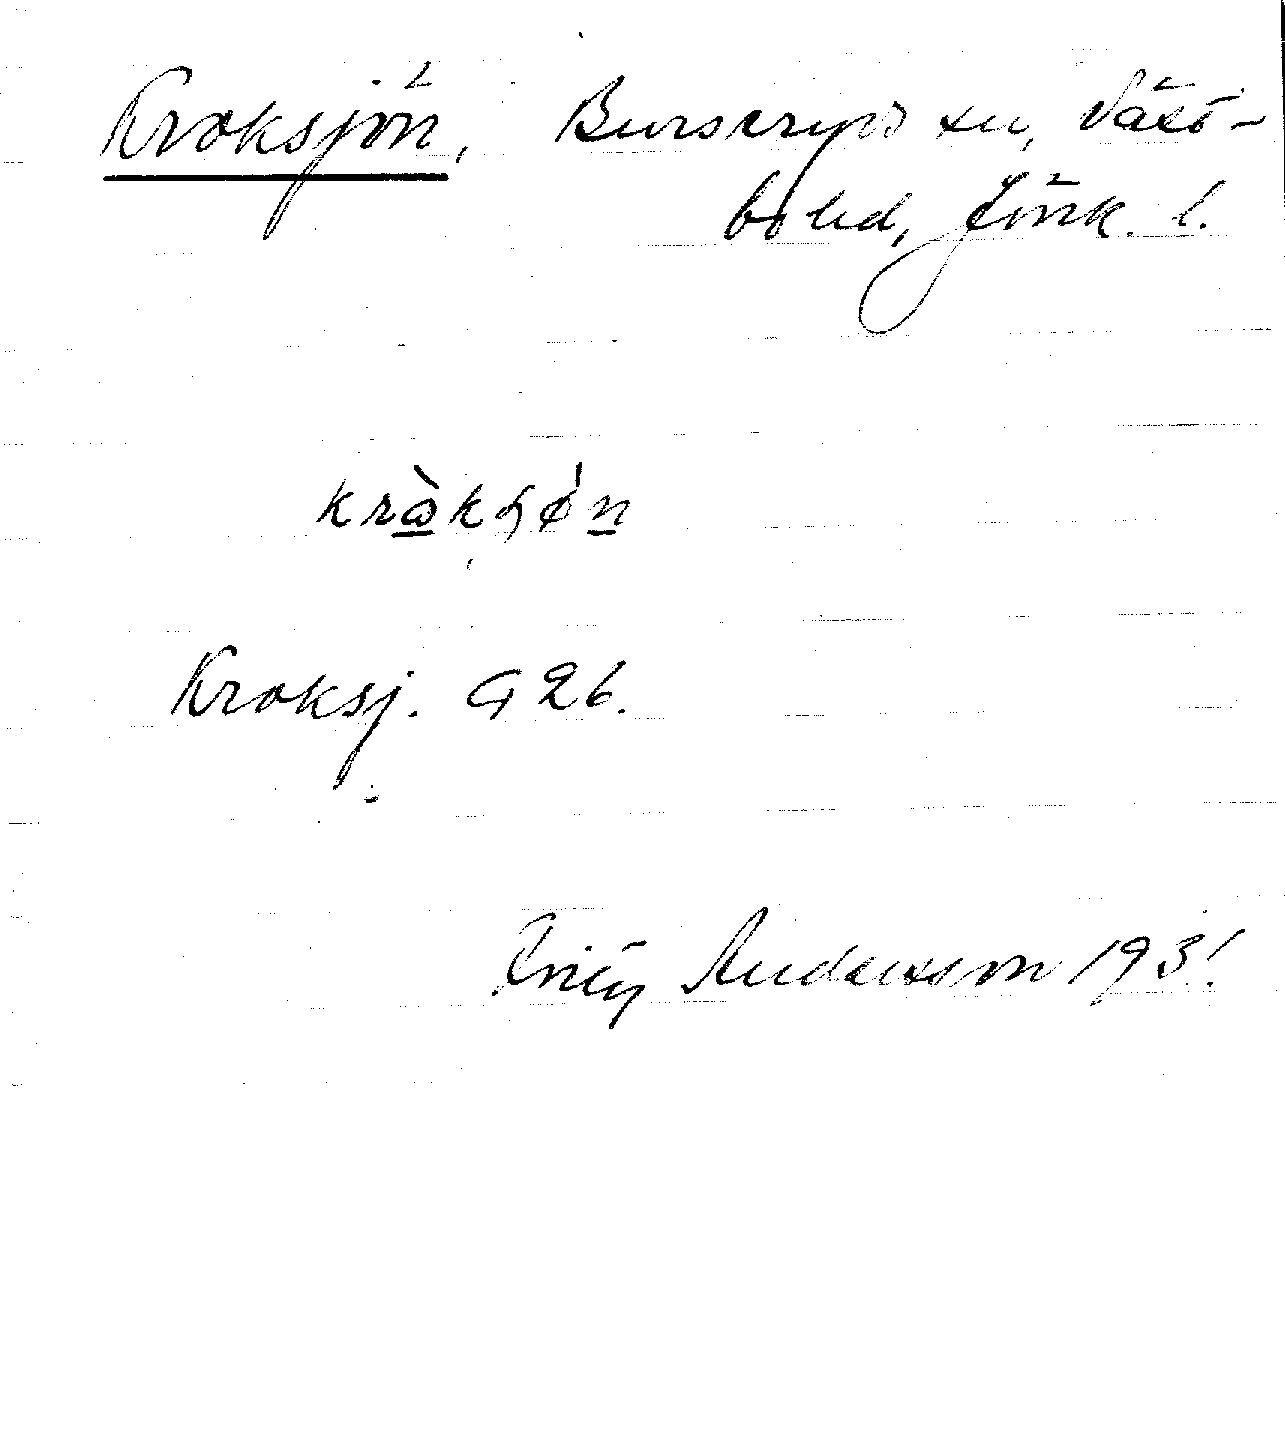 Kroksjön, Burseryds sn, Västbo hd, Jönk. l.
kràkɧøn
Kroksj. G 26.
Andersson 1931